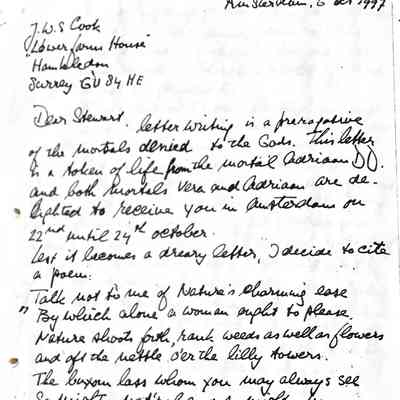 Amsterdam, 6 oct 1997
J.W.S Cook
"Lower farm House"
Hambledon
Surrey GU 84 HE
Dear Stewart, letter writing is a prerogative
of the mortals denied to the Gods. This letter
is a token of life from the mortal Adriaan DD.
and both mortals Vera and Adriaan are de-
lighted to receive you in Amsterdam on
22nd until 24th october.
Lest it becomes a dreary letter, I decide to cite
a poem:
Talk not to me of Nature's charming ease
" By which alone a woman ought to please.
Nature shoots forth, rank weeds as well as flowers
and oft the nettle o'er the lilly towers.
The buxom lass whom you may always see